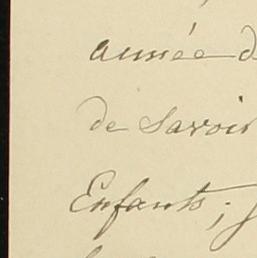 année d
de Savoir
Enfants;